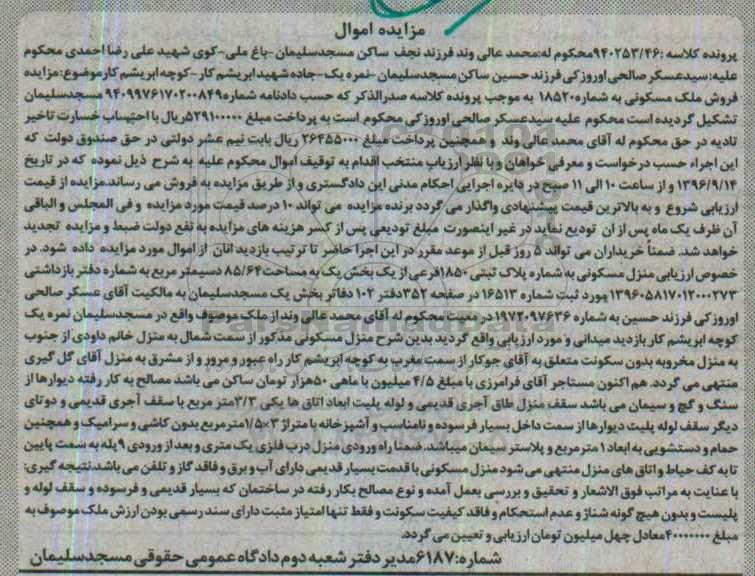 مزایده اموال
پرونده کلاسه :۹۴۰۲۵۳/۴۶محکوم له:محمد عالی وند فرزند نجف ساکن مسجدسلیمان-باغ ملی-کوی شهید علی رضا احمدی محکوم
علیه:سیدعسکر صالحی اوروزکی فرزند حسین ساکن مسجدسلیمان -نمره یک-جاده شهید ابریشم کار-کوچه ابریشم کار موضوع:مزایده
فروش ملک مسکونی به شماره۱۸۵۲۰ به موجب پرونده کلاسه صدرالذکر که حسب دادنامه شماره۹۴۰۹۹۷۶۱۷۰۲۰۰۸۴۹ مسجدسلیمان
تشکیل گردیده است محکوم علیه سیدعسکر صالحی اوروزکی محکوم است به پرداخت مبلغ ۵۲۹۱۰۰۰۰۰ریال با احتساب خسارت تاخیر
تادیه در حق محکوم له آقای محمد عالی وند و همچنین پرداخت مبلغ ۲۶۴۵۵۰۰۰ ریال بابت نیم عشر دولتی در حق صندوق دولت که
این اجراء حسب درخواست و معرفی خواهان و با نظر ارزیاب منتخب اقدام به توقیف اموال محکوم علیه به شرح ذیل نموده که در تاریخ
۱۳۹۶/۹/۱۴ و از ساعت ۱۰ الی ۱۱ صبح در دایره اجرایی احکام مدنی این دادگستری و از طریق مزایده به فروش می رساند.مزایده از قیمت
ارزیابی شروع و به بالاترین قیمت پیشنهادی واگذار می گردد برنده مزایده می تواند ۱۰ درصد قیمت مورد مزایده و فی المجلس و الباقی
آن ظرف یک ماه پس از ان تودیع نماید در غیر اینصورت مبلغ تودیعی پس از کسر هزینه های مزایده به نفع دولت ضبط و مزایده تجدید
خواهد شد. ضمناً خریداران می تواند ۵ روز قبل از موعد مقرر در این اجرا حاضر تا ترتیب بازدید انان از اموال مورد مزایده داده شود. در
خصوص ارزیابی منزل مسکونی به شماره پلاک ثبتی ۱۸۵۰فرعی از یک بخش یک به مساحت۸۵/۶۴ دسیمتر مربع به شماره دفتر بازداشتی
۱۳۹۶۰۵۸۱۷۰۱۲۰۰۰۲۷۳مورد ثبت شماره ۱۶۵۱۳ در صفحه ۳۵۲دفتر ۱۰۲ دفاتر بخش یک مسجدسلیمان به مالکیت آقای عسکر صالحی
اوروزکی فرزند حسین به شماره ۱۹۷۲۰۹۷۶۳۶ در معیت محکوم له آقای محمد عالی وند از ملک موصوف واقع در مسجدسلیمان نمره یک
کوچه ابریشم کار بازدید میدانی و مورد ارزیابی واقع گردید بدین شرح منزل مسکونی مذکور از سمت شمال به منزل خانم داودی از جنوب
به منزل مخروبه بدون سکونت متعلق به آقای جوکار از سمت مغرب به کوچه ابریشم کار راه عبور و مرور و از مشرق به منزل آقای گل گیری
منتهی می گردد. هم اکنون مستاجر آقای فرامرزی با مبلغ ۴/۵ میلیون با ماهی ۵۰هزار تومان ساکن می باشد مصالح به کار رفته دیوارها از
سنگ و گچ و سیمان می باشد سقف منزل طاق آجری قدیمی و لوله پلیت ابعاد اتاق ها یکی ۳/۳متر مربع با سقف آجری قدیمی و دو تای
دیگر سقف لوله پلیت دیوارها از سمت داخل بسیار فرسوده و نامناسب و آشپزخانه با متراژ ۳×۱/۵مترمربع بدون کاشی و سرامیک و همچنین
حمام و دستشویی به ابعاد ۱ متر مربع و پلاستر سیمان میباشد. ضمنا راه ورودی منزل درب فلزی یک متری و بعد از ورودی ۹ پله به سمت پایین
تا به کف حیاط و اتاق های منزل منتهی می شود منزل مسکونی با قدمت بسیار قدیمی دارای آب و برق و فاقد گاز و تلفن می باشد.نتیجه گیری:
با عنایت به مراتب فوق الاشعار و تحقیق و بررسی بعمل آمده و نوع مصالح بکار رفته در ساختمان که بسیار قدیمی و فرسوده و سقف لوله و
پلیست و بدون هیچ گونه شناژ و عدم استحکام و فاقد کیفیت سکونت و فقط تنها امتیاز مثبت دارای سند رسمی بودن ارزش ملک موصوف به
مبلغ ۴۰۰۰۰۰۰۰معادل چهل میلیون تومان ارزیابی و تعیین می گردد.
شماره:۶۱۸۷مدیر دفتر شعبه دوم دادگاه عمومی حقوقی مسجدسلیمان